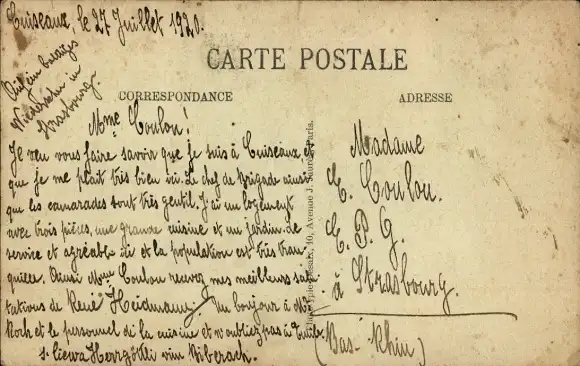 Cuiseaux, le 27 Juillet 1920.
CARTE POSTALE
Auf ein baldiges
Wiedersehn in
Strasbourg.
CORRESPONDANCE
ADRESSE
Mme Coulou!
Je veu vous faire savoir que je suis à Cuiseaux et
que je me plait très bien ici. Le chef de Brigade ainsi
que les camarades sont très gentil. J'ai un logement
avec trois pièces, une grande cuisine et un jardin. Le
service et agréable ici et la population est très tran
quille. Ainsi Mme Coulou recevez mes meilleurs salu
tations de René Heidmann. Un bonjour à Mr
Koch et le personnel de la cuisine et n'oubliez pas à
s. liewa Herrgöttli vun Biberach.
10, Avenue J. Paris.
Madame
C. Coulou.
C. P. G.
à Strasbourg.
(Bas-Rhin)